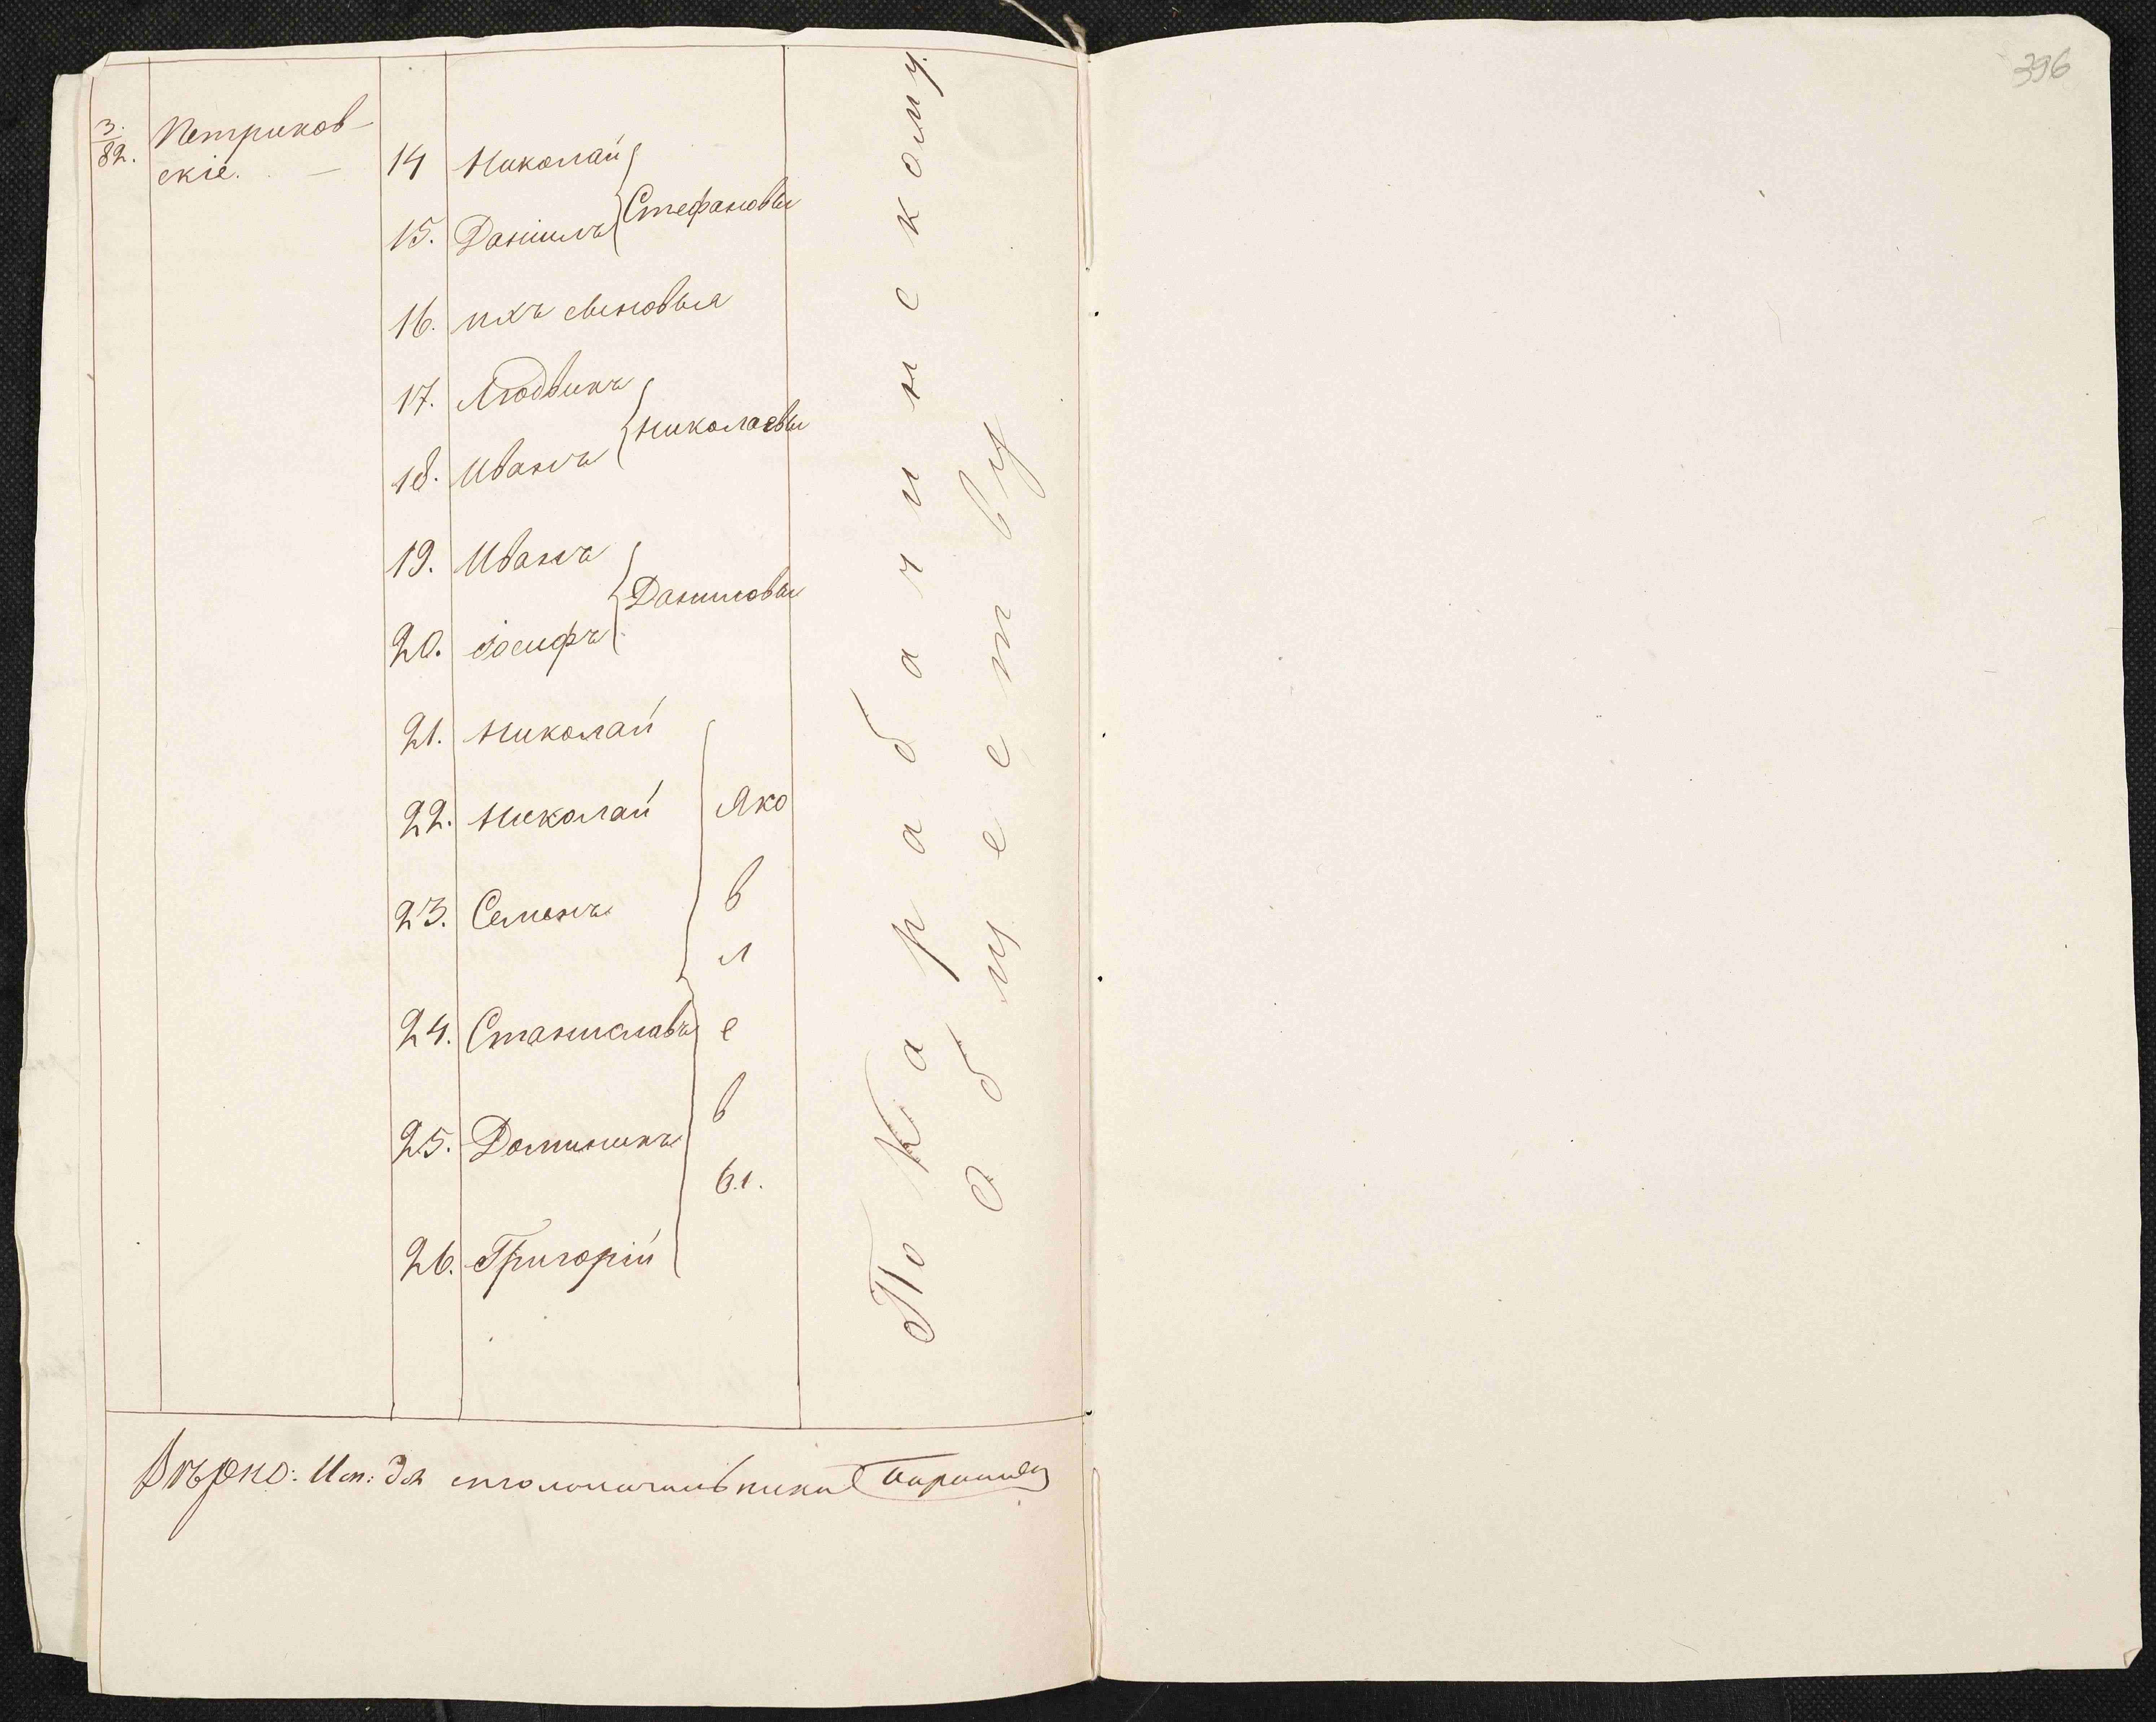 396
3.
82.
Петриков-
скіе. —
14 Николай
15. Даніилъ
Стефановы
16. ихъ сыновья
17. Людвикъ
18. Иванъ
Николаевы
19. Иванъ
20. Іосифъ
Даниловы
21. Николай
22. Николай
23. Семенъ
24. Станиславъ
25. Доминикъ
26. Григорій
Яковлевы.
По Карабачинскому
обществу
Вѣрно: Исп: дол столоначальника